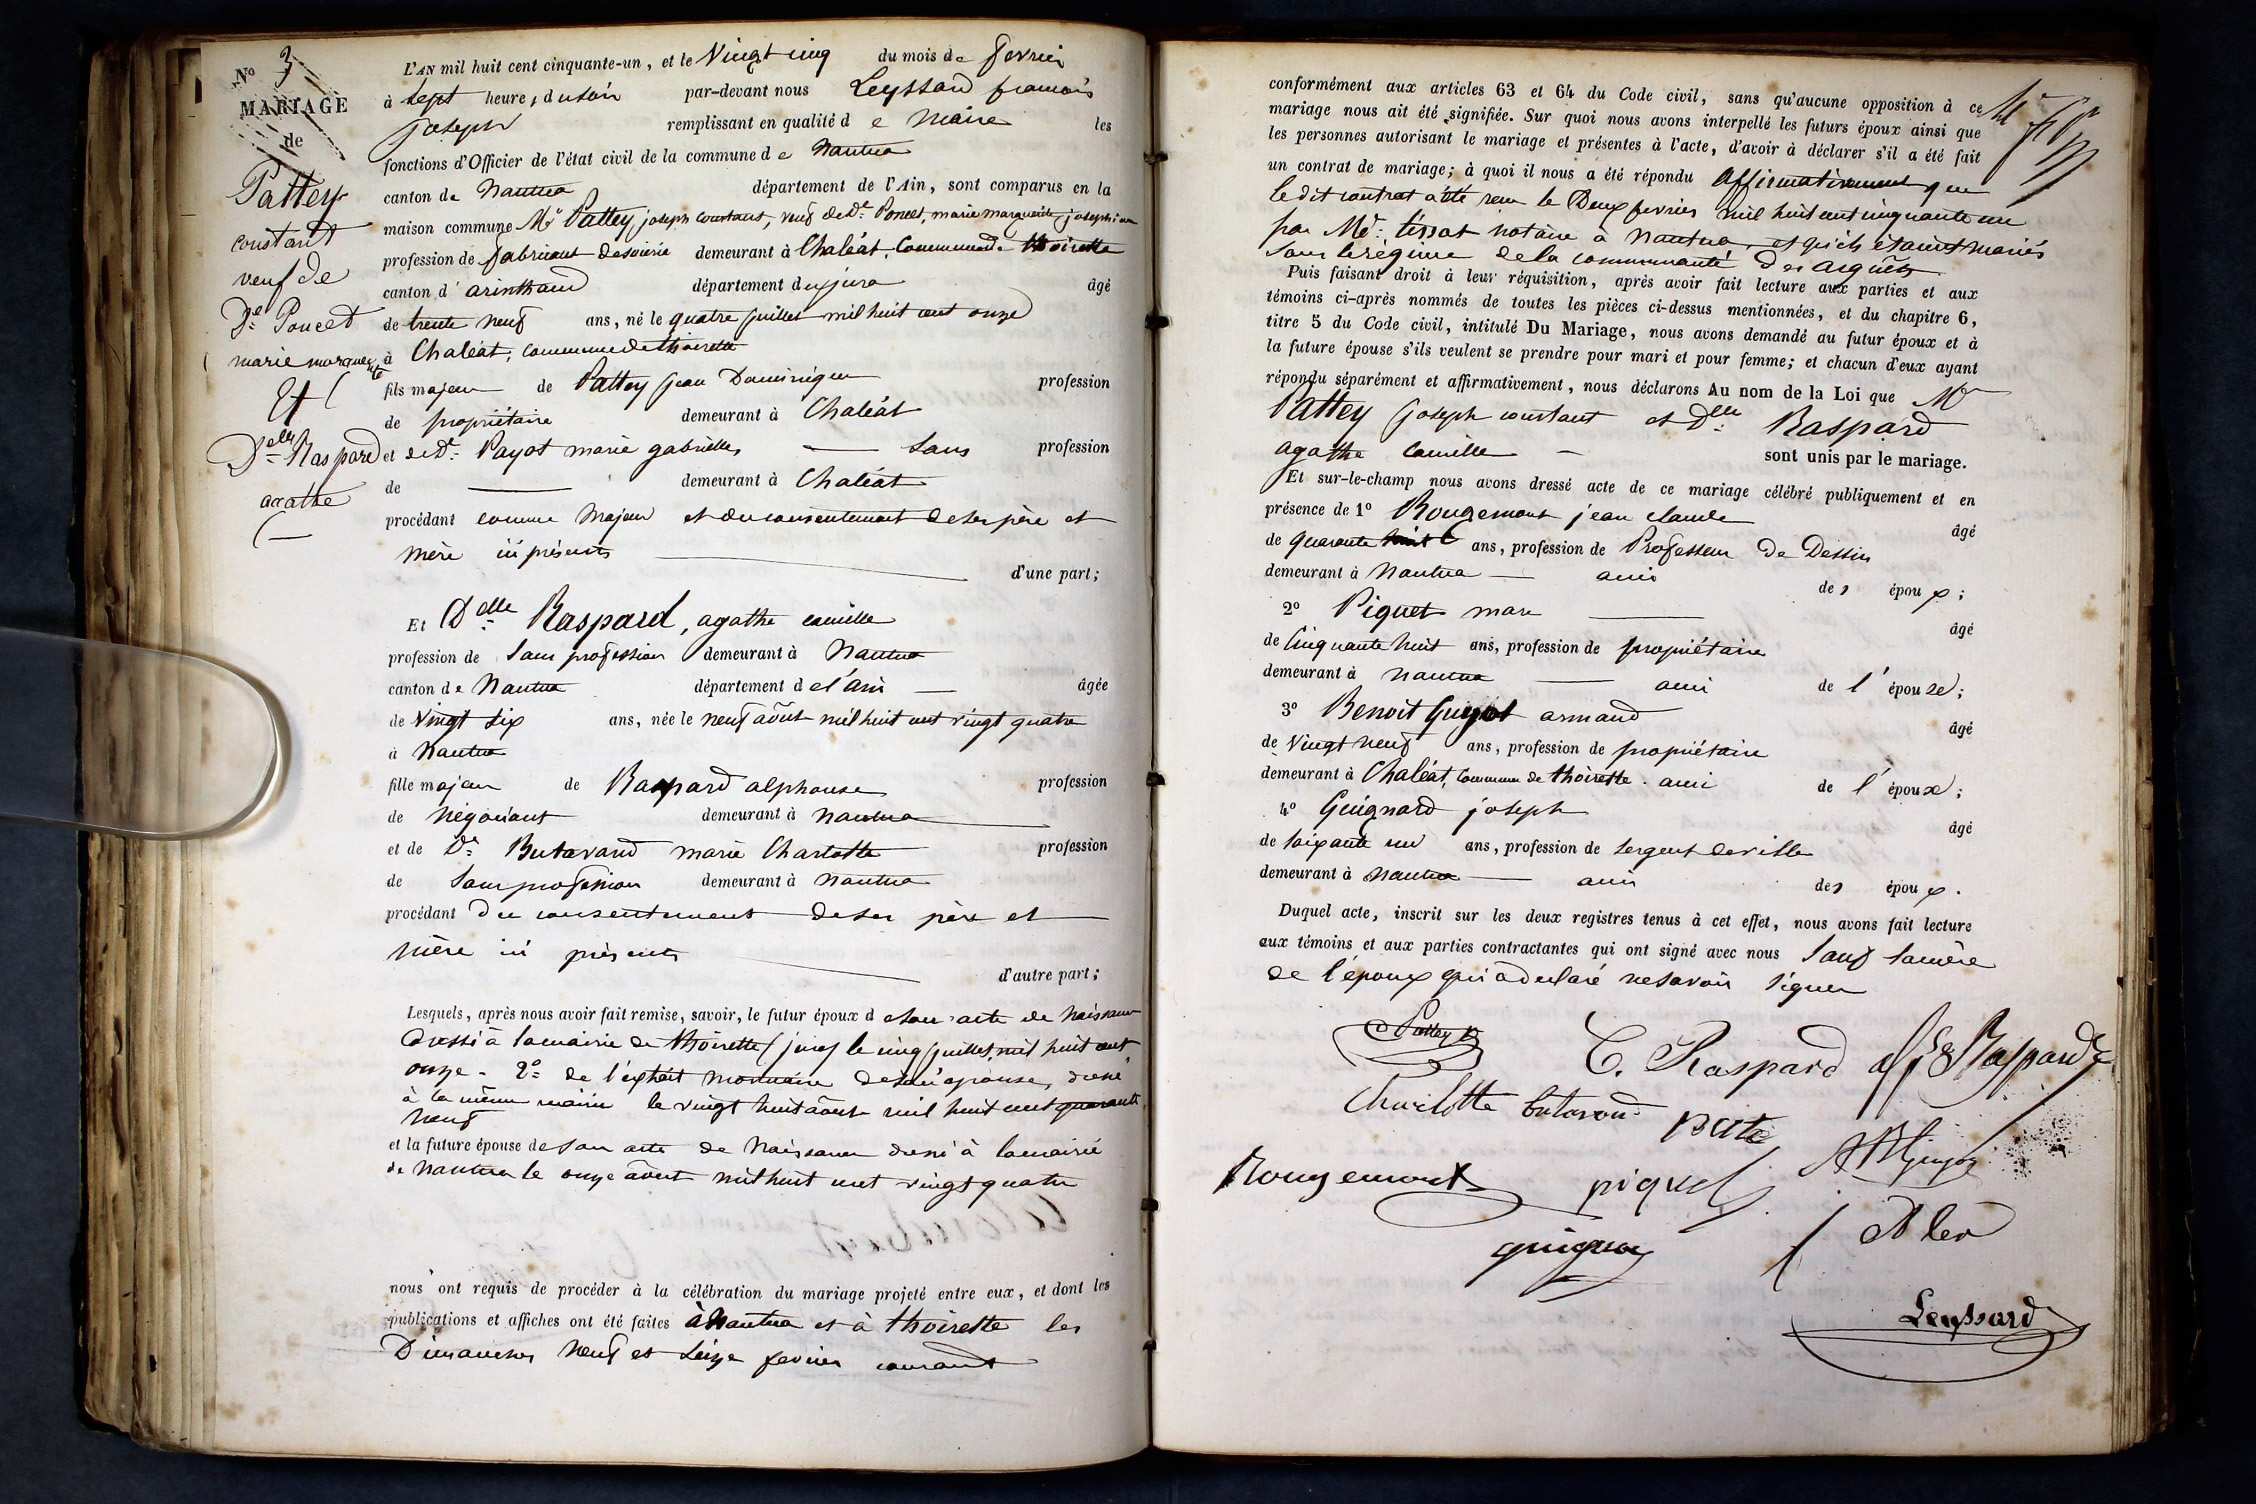 N° 3
MARIAGE
de
Pattey
constant
veuf de
De Poncet
marie marguerite
et
Delle Raspard
agathe
L'AN mil huit cent cinquante-un, et le Vingt cinq du mois de fevrier
à sept heures du soir par-devant nous Leyssard françois
joseph remplissant en qualité de Maire les
fonctions d'Officier de l'état civil de la commune de Nantua
canton de Nantua département de l'Ain, sont comparus en la
maison commune Mr Pattey joseph constant, veuf de De Poncet, marie marguerite
profession de fabricant de soierie demeurant à Chaléat, Commune de thoirette
canton d'arinthaud département du jura âgé
de trente neuf ans, né le quatre juillet mil huit cent onze
à Chaléat, commune de thoirette
fils majeur de Pattey jean Dominique profession
de propriétaire demeurant à Chaléat
et de De Payot marie gabrielle — sans profession
de — demeurant à Chaléat
procédant comme Majeur et du consentement de ses père et
mère ici présents
d'une part;
Et Delle Raspard, agathe camille
profession de Sans profession demeurant à Nantua
canton de Nantua département de l'ain — âgée
de Vingt six ans, née le neuf août mil huit cent vingt quatre
à Nantua
fille majeure de Raspard alphonse profession
de négociant demeurant à Nantua
et de De Butavand marie Charlotte profession
de Sans profession demeurant à Nantua
procédant du consentement de ses père et
mère ici présents
d'autre part;
Lesquels, après nous avoir fait remise, savoir, le futur époux de son acte de naissance
dressé à la mairie de thoirette (jura) le cinq juillet mil huit cent
onze - 2° de l'extrait mortuaire de son épouse, dressé
à la même mairie le vingt huit août mil huit cent quarante
neuf
et la future épouse de son acte de Naissance dressé à la mairie
de Nantua le onze août mil huit cent vingt quatre
nous ont requis de procéder à la célébration du mariage projeté entre eux, et dont les
publications et affiches ont été faites à Nantua et à thoirette les
Dimanches neuf et seize fevrier courant
conformément aux articles 63 et 64 du Code civil, sans qu'aucune opposition à ce
mariage nous ait été signifiée. Sur quoi nous avons interpellé les futurs époux ainsi que
les personnes autorisant le mariage et présentes à l'acte, d'avoir à déclarer s'il a été fait
un contrat de mariage; à quoi il nous a été répondu affirmativement que
ledit contrat a été reçu le Deux fevrier mil huit cent cinquante un
par Me tissot notaire à Nantua, et qu'ils étaient mariés
sous le régime de la communauté des acquêts
Puis faisant droit à leur réquisition, après avoir fait lecture aux parties et aux
témoins ci-après nommés de toutes les pièces ci-dessus mentionnées, et du chapitre 6,
titre 5 du Code civil, intitulé Du Mariage, nous avons demandé au futur époux et à
la future épouse s'ils veulent se prendre pour mari et pour femme; et chacun d'eux ayant
répondu séparément et affirmativement, nous déclarons Au nom de la Loi que Mr
Pattey joseph constant et Delle Raspard
agathe camille — sont unis par le mariage.
Et sur-le-champ nous avons dressé acte de ce mariage célébré publiquement et en
présence de 1° Rougemont jean claude âgé
de quarante ans, profession de Professeur de Dessin
demeurant à Nantua — ami des époux;
2° Piquet marc âgé
de Cinquante huit ans, profession de propriétaire
demeurant à Nantua — ami de l'épouse;
3° Benoit Guyot armand âgé
de Vingt neuf ans, profession de propriétaire
demeurant à Chaléat, Commune de thoirette. ami de l'époux;
4° Guignard joseph âgé
de soixante un ans, profession de sergent de ville
demeurant à Nantua — ami des époux.
Duquel acte, inscrit sur les deux registres tenus à cet effet, nous avons fait lecture
aux témoins et aux parties contractantes qui ont signé avec nous Sauf la mère
de l'époux qui a déclaré ne savoir signer
Pattey
C. Raspard
Raspard
Charlotte butavand
Rougemont
piquet
Leyssard